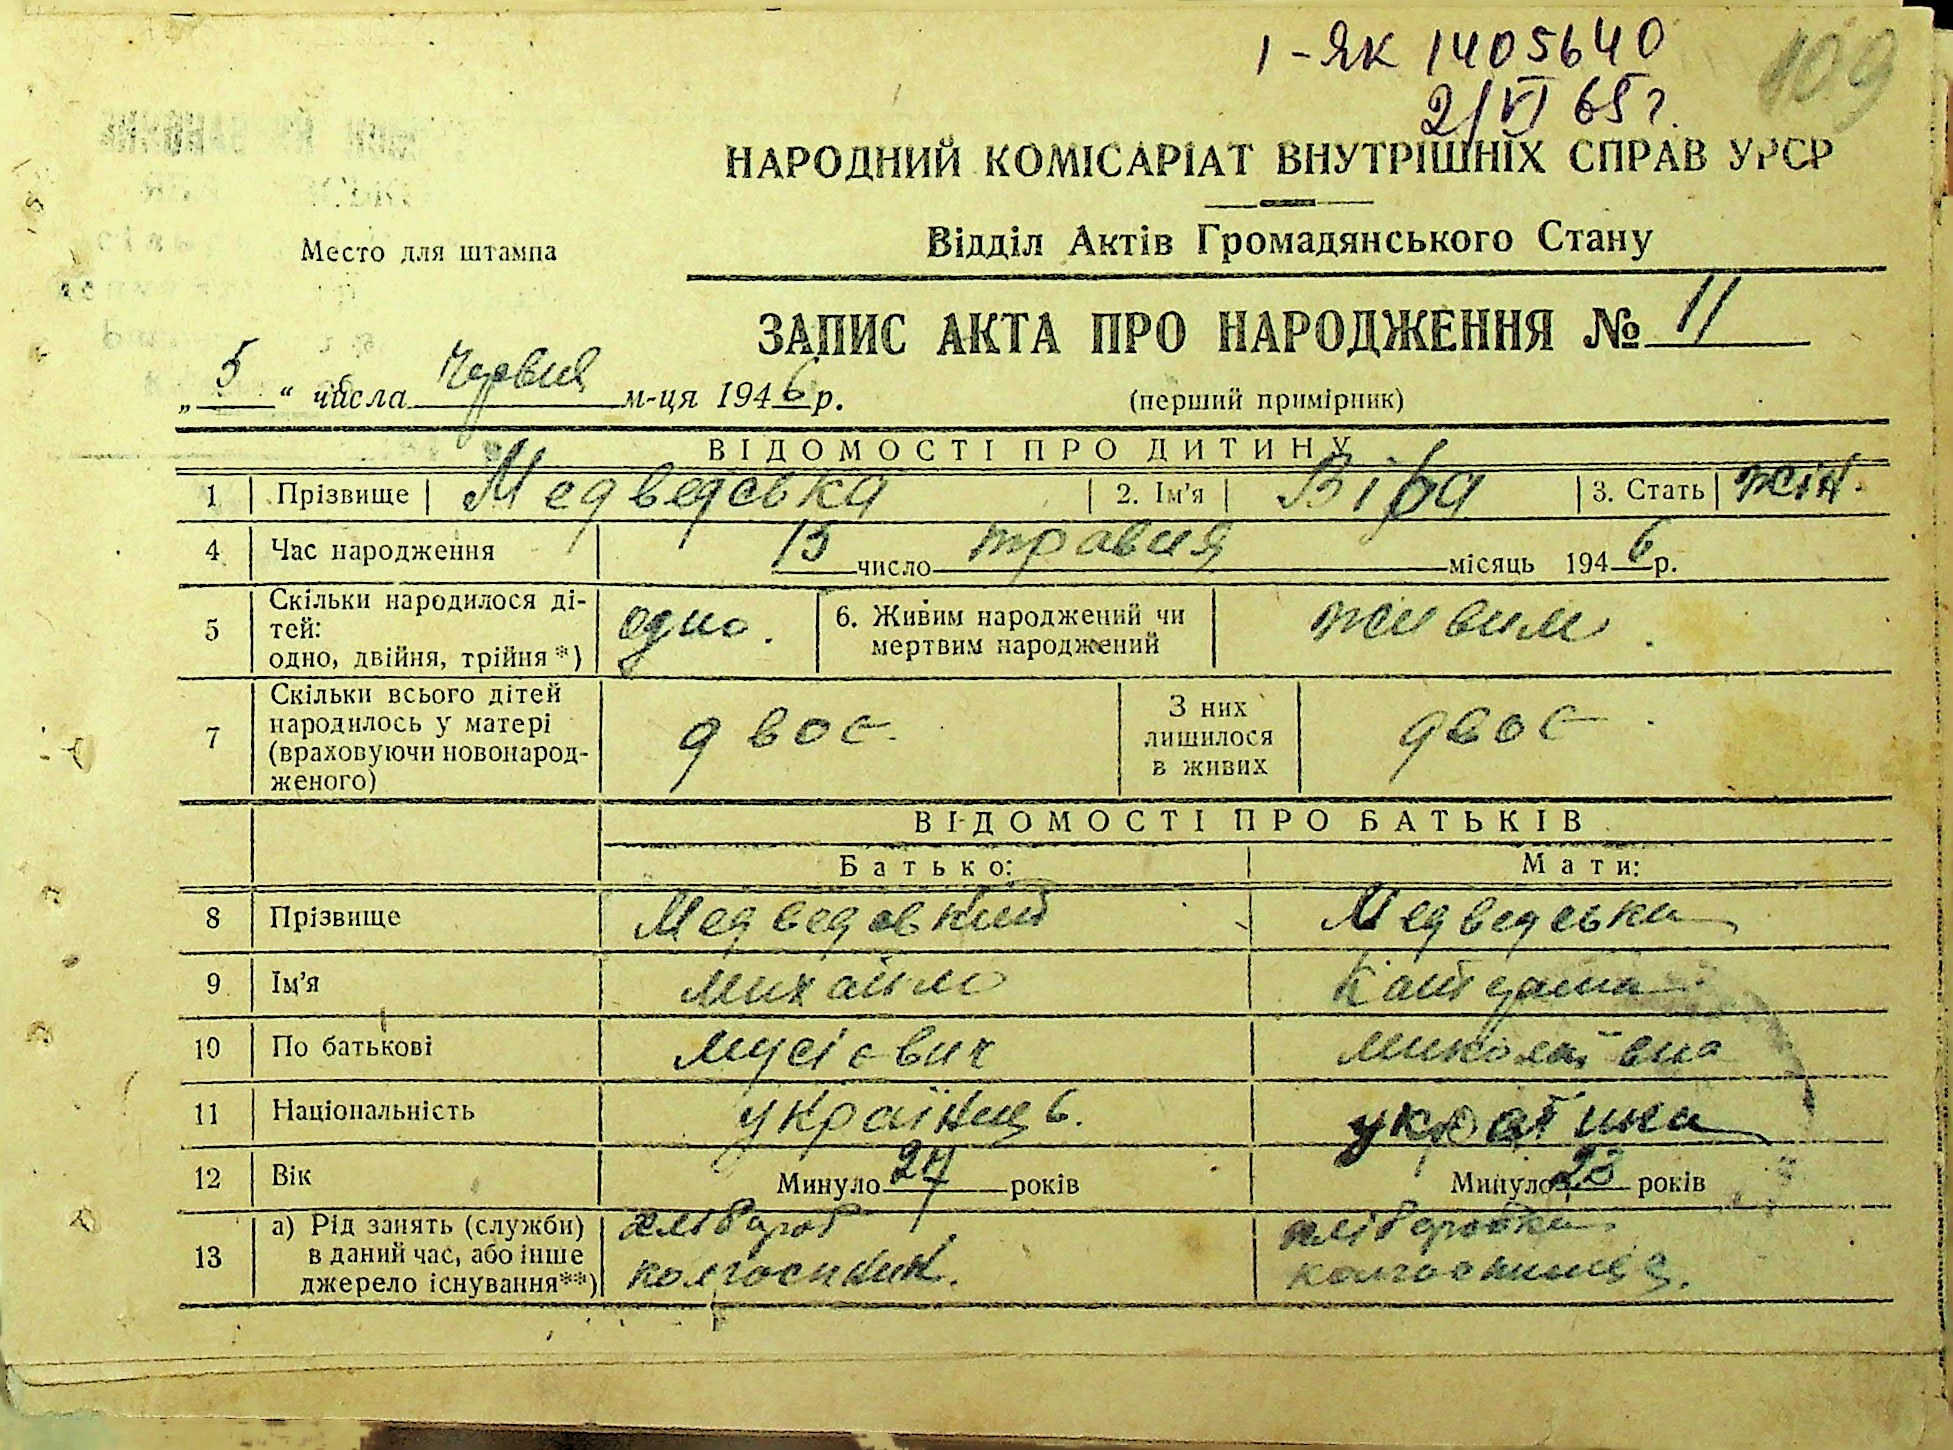 1-ЯК 1405640
109
2/VI 65 г.
НАРОДНИЙ КОМІСАРІАТ ВНУТРІШНІХ СПРАВ УРСР
Відділ Актів Громадянського Стану
Место для штампа
ЗАПИС АКТА ПРО НАРОДЖЕННЯ № 11
„ 5 “ числа Червня м-ця 1946 р.
(перший примірник)
ВІДОМОСТІ ПРО ДИТИНУ
1 Прізвище Медведська 2. Ім'я Віра 3. Стать жін.
4 Час народження 15 число травня місяць 1946 р.
5 Скільки народилося ді-
тей:
одно, двійня, трійня*) одно. 6. Живим народжений чи
мертвим народжений живим.
7 Скільки всього дітей
народилось у матері
(враховуючи новонарод-
женого) двоє. З них
лишилося
в живих двоє
ВІДОМОСТІ ПРО БАТЬКІВ
Батько: Мати:
8 Прізвище Медведский Медведська
9 Ім'я Михайло Катерина
10 По батькові Мусієвич Миколаївна
11 Національність українець. українка
12 Вік Минуло 27 років Минуло 23 років
13 а) Рід занять (служби)
в даний час, або інше
джерело існування**) хлібороб
колгоспник. хліборобка
колгоспниця.